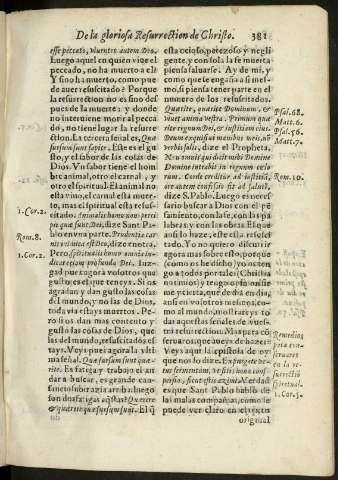 De la gloriosa Resurrection de Christo. 381
esse peccato, viventes autem Deo.
Luego aquel en quien vive el
peccado, no ha muerto a el:
Y sino ha muerto, como pue
de auer resuscitado? Porque
la resurrection no es sino des
pues de la muerte: y donde
no interuiene morir al pecca
do, no tiene lugar la resurre
ction. La tercera señal es, Quæ
sursum sunt sapite. Este es el gu
sto, y el sabor de las cosas de
Dios. Vn sabor tiene el hom
bre animal, otro el carnal, y
otro el spiritual. El animal no
esta viuo, el carnal esta muer
to, mas el spiritual esta resu
scitado.
dize Sant Pa
blo en otra parte. Prudentia car
nis
Pero, spiritualis homo omnia iu
dicat
pueda
gusto, es el que teneys. Si os
agradan y dan gusto las cosas
del mundo, y no las de Dios,
toda via estays muertos. Pe
ro si os dan mas contento y
gusto las cosas de Dios, que
las del mundo, resuscitados e
stays. Veys pues agora la vlti
ma señal. Quæ sursum sunt quæ
rite. Es fatiga y trabajo el an
dar a buscar, es grande can
sancio subir azia arriba: luego
son dos fatigas aquestas: Quærite
& quærite quæ sursum sunt. El q̃
1.Cor.2.
Rom.8.
1.Cor.2.
esta ocioso, perezoso y negli
gente, y con sola la fe muerta
piensa saluarse. Ay de mi, y
como que se engaña si aquesto
piensa. Quærite, quærite Dominum, &
viuet anima vestra. Primum quæ
rite regnum Dei, & iustitiam eius.
dize el Propheta.
Non omnis qui dicit mihi Domine
Domine intrabit in regnum cælo
rum. Corde creditur ad iustitiam,
ore autem confessio fit ad salutem,
dize S. Pablo. Luego es neces
sario buscar a Dios con el pẽ
samiento, con la fe, con las pa
labras y con las obras. El que
assi lo haze, ha resuscitado cier
to. Yo no quiero discurrir
agora mas sobre esto, porque
(como os he dicho) yo no ten
go a todos por tales (Christia
nos mios) y tengo esperança
y por cierto, que
ansi en vosotros mesmos, co
mo al mundo, mostrareys to
das aquestas señales de vues
tra resurrection. Mas para cõ
seruaros, que aueys de hazer?
Veys aqui la epistola de oy
que nos lo dize. Expurgate ve
tus fermentum, vt sitis noua con
spersio, sicut estis azimi. Verdad
es que Sant Pablo habla de
las malas compañias, como se
puede ver claro en el texto
original
Psal.68.
Matt.6.
Matt.7.
Rom.10.
Remedios
para con-
seruarnos
en la re-
surrectiõ
spiritual.
1.Cor.5.